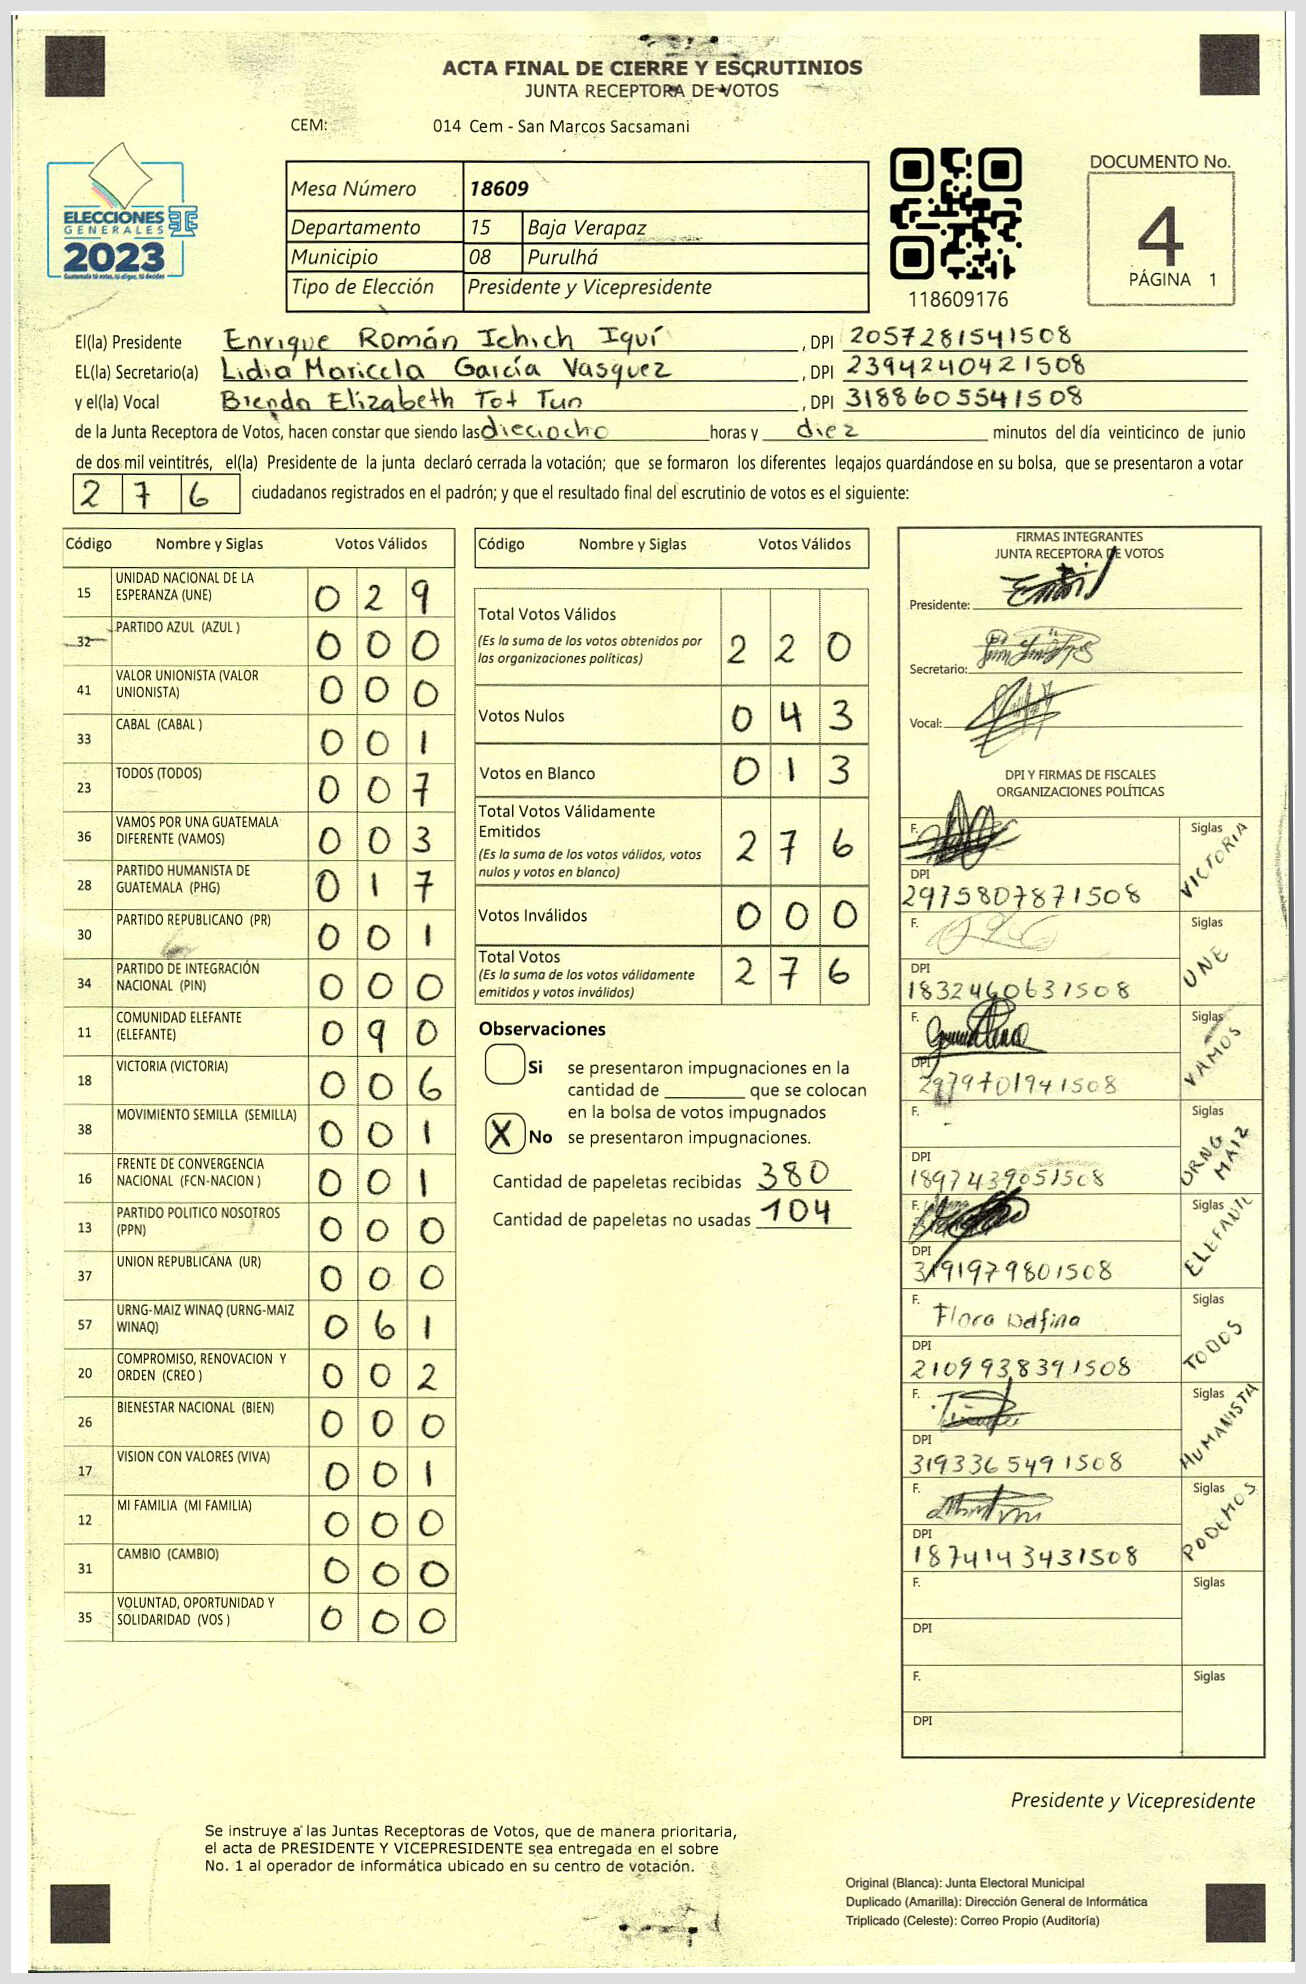 ACTA FINAL DE CIERRE Y ESCRUTINIOS
JUNTA RECEPTORA DE VOTOS
CEM: 014 Cem - San Marcos Sacsamani
ELECCIONES
GENERALES
2023
Guatemala tú votas, tú eliges, tú decides
Mesa Número 18609
Departamento 15 Baja Verapaz
Municipio 08 Purulhá
Tipo de Elección Presidente y Vicepresidente
118609176
DOCUMENTO No.
4
PÁGINA 1
El(la) Presidente Enrique Román Ichich Iquí , DPI 2057281541508
EL(la) Secretario(a) Lidia Maricela García Vasquez , DPI 2394240421508
y el(la) Vocal Brenda Elizabeth Tot Tun , DPI 3188605541508
de la Junta Receptora de Votos, hacen constar que siendo las dieciocho horas y diez minutos del día veinticinco de junio
de dos mil veintitrés, el(la) Presidente de la junta declaró cerrada la votación; que se formaron los diferentes legajos guardándose en su bolsa, que se presentaron a votar
276 ciudadanos registrados en el padrón; y que el resultado final del escrutinio de votos es el siguiente:
Código Nombre y Siglas Votos Válidos
15 UNIDAD NACIONAL DE LA ESPERANZA (UNE) 029
32 PARTIDO AZUL (AZUL ) 000
41 VALOR UNIONISTA (VALOR UNIONISTA) 000
33 CABAL (CABAL ) 001
23 TODOS (TODOS) 007
36 VAMOS POR UNA GUATEMALA DIFERENTE (VAMOS) 003
28 PARTIDO HUMANISTA DE GUATEMALA (PHG) 017
30 PARTIDO REPUBLICANO (PR) 001
34 PARTIDO DE INTEGRACIÓN NACIONAL (PIN) 000
11 COMUNIDAD ELEFANTE (ELEFANTE) 090
18 VICTORIA (VICTORIA) 006
38 MOVIMIENTO SEMILLA (SEMILLA) 001
16 FRENTE DE CONVERGENCIA NACIONAL (FCN-NACION ) 001
13 PARTIDO POLITICO NOSOTROS (PPN) 000
37 UNION REPUBLICANA (UR) 000
57 URNG-MAIZ WINAQ (URNG-MAIZ WINAQ) 061
20 COMPROMISO, RENOVACION Y ORDEN (CREO ) 002
26 BIENESTAR NACIONAL (BIEN) 000
17 VISION CON VALORES (VIVA) 001
12 MI FAMILIA (MI FAMILIA) 000
31 CAMBIO (CAMBIO) 000
35 VOLUNTAD, OPORTUNIDAD Y SOLIDARIDAD (VOS ) 000
Código Nombre y Siglas Votos Válidos
Total Votos Válidos
(Es la suma de los votos obtenidos por las organizaciones políticas) 220
Votos Nulos 043
Votos en Blanco 013
Total Votos Válidamente Emitidos
(Es la suma de los votos válidos, votos nulos y votos en blanco) 276
Votos Inválidos 000
Total Votos
(Es la suma de los votos válidamente emitidos y votos inválidos) 276
Observaciones
Si se presentaron impugnaciones en la
cantidad de ________ que se colocan
en la bolsa de votos impugnados
X No se presentaron impugnaciones.
Cantidad de papeletas recibidas 380
Cantidad de papeletas no usadas 104
FIRMAS INTEGRANTES
JUNTA RECEPTORA DE VOTOS
Presidente:
Secretario:
Vocal:
DPI Y FIRMAS DE FISCALES
ORGANIZACIONES POLÍTICAS
F. Siglas VICTORIA
DPI 2975807871508
F. Siglas UNE
DPI 1832460631508
F. Siglas VAMOS
DPI 2979701941508
F. Siglas URNG MAIZ
DPI 1897439051508
F. Siglas ELEFANTE
DPI 3191979801508
F. Flora Delfina Siglas TODOS
DPI 2109938391508
F. Siglas HUMANISTA
DPI 3193365491508
F. Siglas PODEMOS
DPI 1874143431508
F. Siglas
DPI
F. Siglas
DPI
Presidente y Vicepresidente
Se instruye a las Juntas Receptoras de Votos, que de manera prioritaria,
el acta de PRESIDENTE Y VICEPRESIDENTE sea entregada en el sobre
No. 1 al operador de informática ubicado en su centro de votación.
Original (Blanca): Junta Electoral Municipal
Duplicado (Amarilla): Dirección General de Informática
Triplicado (Celeste): Correo Propio (Auditoría)